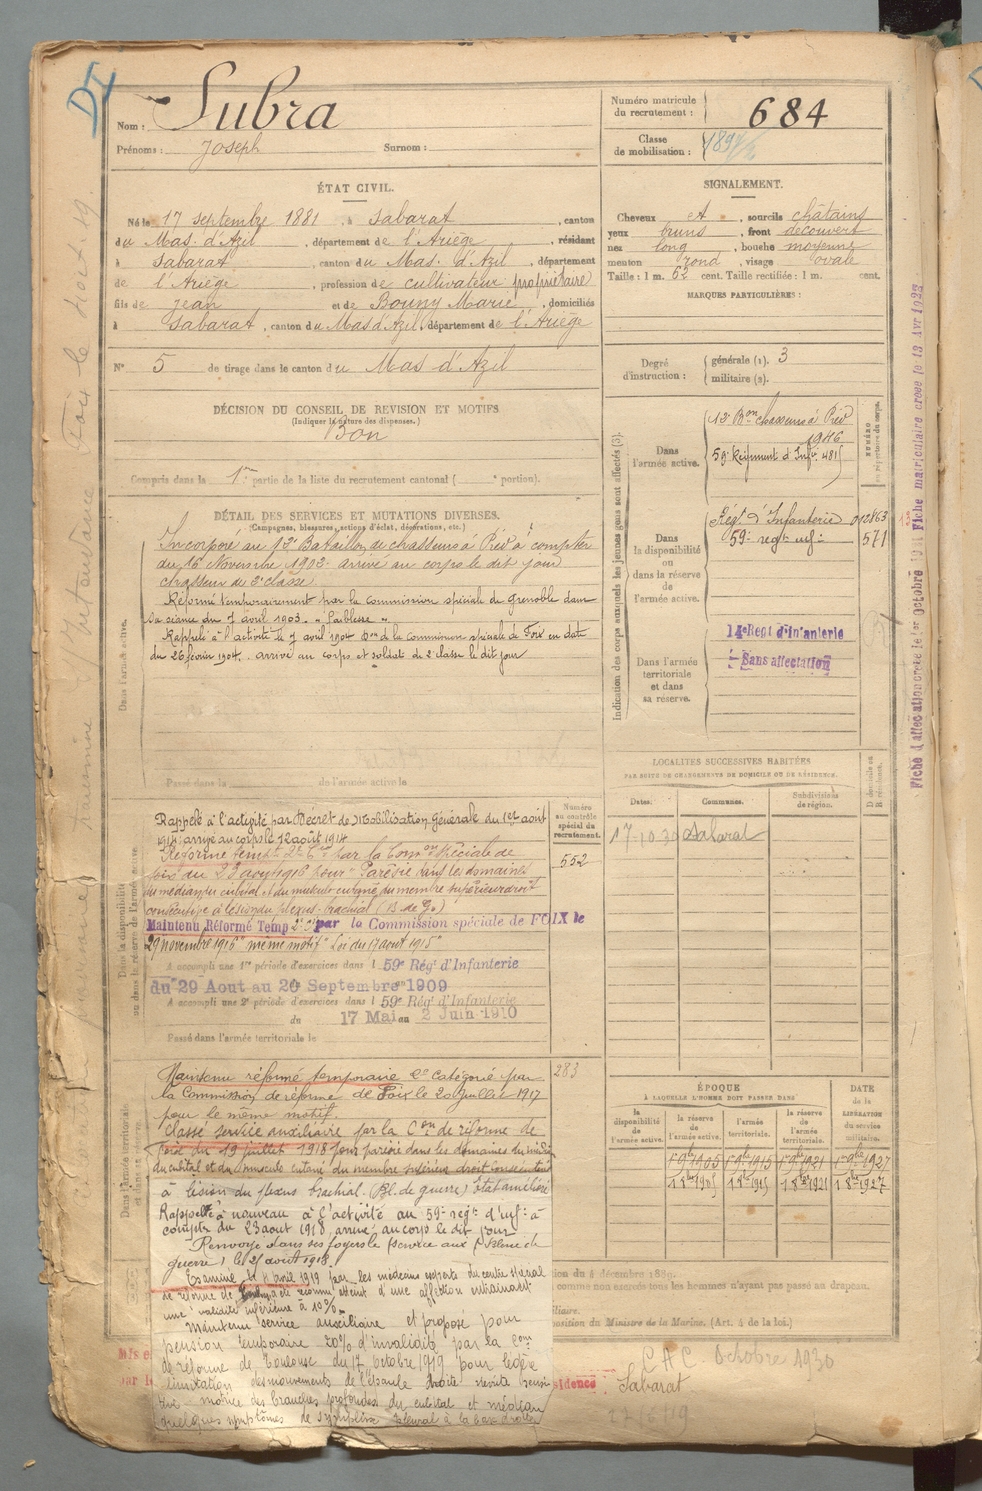 DI
Nom : Subra
Prénoms : Joseph Surnom :
Numéro matricule du recrutement : 684
Classe de mobilisation :
ÉTAT CIVIL.
Né le 17 septembre 1881, à Sabarat, canton
du Mas. d'Azil, département de l'Ariège, résidant
à Sabarat, canton du Mas. d'Azil, département
de l'Ariège, profession de cultivateur propriétaire
fils de Jean et de Bouny Marie, domiciliés
à Sabarat, canton du Mas d'Azil, département de l'Ariège
N° 5 de tirage dans le canton du Mas d'Azil
SIGNALEMENT.
Cheveux et, sourcils châtains
yeux bruns, front découvert
nez long, bouche moyenne
menton rond, visage ovale
Taille : 1 m. 62 cent. Taille rectifiée : 1 m. cent.
MARQUES PARTICULIÈRES :
Degré d'instruction : générale (1). 3
militaire (2).
DÉCISION DU CONSEIL DE REVISION ET MOTIFS
(Indiquer la nature des dispenses.)
Bon
Compris dans la 1re partie de la liste du recrutement cantonal ( portion).
DÉTAIL DES SERVICES ET MUTATIONS DIVERSES.
(Campagnes, blessures, actions d'éclat, décorations, etc.)
Dans l'armée active.
Incorporé au 12e Bataillon de chasseurs à Pied à compter
du 16 Novembre 1902. arrivé au corps le dit jour
chasseur de 2e classe.
Réformé temporairement par la commission spéciale de Grenoble dans
sa séance du 7 avril 1903. "faiblesse".
Rappelé à l'activité le 7 avril 1904 Don de la commission spéciale de Foix en date
du 26 février 1904. arrivé au corps et soldat de 2e classe le dit jour
Passé dans la de l'armée active le
Indication des corps auxquels les jeunes gens sont affectés (3).
NUMÉRO au répertoire du corps.
Dans l'armée active.
12e Bon chasseurs à Pied
1946
59e Régiment d'Infie 4815
Dans la disponibilité ou dans la réserve de l'armée active.
Régt d'Infanterie 012863
59e regt inf 571
Dans l'armée territoriale et dans sa réserve.
14e Regt d'Infanterie
Sans affectation
LOCALITÉS SUCCESSIVES HABITÉES
PAR SUITE DE CHANGEMENTS DE DOMICILE OU DE RÉSIDENCE.
Dates. Communes. Subdivisions de région. D. domicile ou R. résidence.
17-10-30 Sabarat
Dans la disponibilité ou dans la réserve de l'armée active.
Numéro au contrôle spécial du recrutement.
552
Rappelé à l'activité par Décret de Mobilisation Générale du 1er août
1914; arrivé au corps le 12 août 1914
Réformé tempre 2e Cie par la Comon Spéciale de
Foix du 23 aout 1916 pour "Parésie dans les domaines
du médian, du cubital et du musculo cutané du membre supérieur droit
consécutive à lésion du plexus brachial (B. de G.)
Maintenu Réformé Temp 2e Cie par la Commission spéciale de FOIX le
29 novembre 1916 "même motif" Loi du 17 aout 1915
A accompli une 1re période d'exercices dans l 59e Régt d'Infanterie
du 29 Aout au 20 Septembre 1909
A accompli une 2e période d'exercices dans l 59e Régt d'Infanterie
du 17 Mai au 2 Juin 1910
Passé dans l'armée territoriale le
283
Dans l'armée territoriale et dans sa réserve.
Maintenu réformé temporaire 2e catégorie par
la Commission de réforme de Foix le 20 juillet 1917
pour le même motif.
Classé service auxiliaire par la Con de réforme de
Foix du 19 juillet 1918 pour parésie dans les domaines du médian
du cubital et du musculo cutané du membre supérieur droit consécutive
à lésion du plexus brachial. (Bl. de guerre) état amélioré
Rappelé à nouveau à l'activité au 59e regt d'inf à
compter du 23 aout 1918, arrivé au corps le dit jour
Renvoyé dans ses foyers le (service aux) (Blessé de
guerre) le 25 août 1918.
Examiné le 11 avril 1919 par les médecins experts du centre spécial
de réforme de reconnu atteint d'une affection entraînant
une invalidité inférieure à 10%.
Maintenu service auxiliaire et proposé pour
pension temporaire 20% d'invalidité par la Com
de réforme de Toulouse du 17 octobre 1919 pour légère
limitation des mouvements de l'épaule droite
motrice des branches profondes du cubital et médian
quelques symptômes de symphise pleural à la base droite
ÉPOQUE
À LAQUELLE L'HOMME DOIT PASSER DANS
la disponibilité de l'armée active. la réserve de l'armée active. l'armée territoriale. la réserve de l'armée territoriale.
DATE de la LIBÉRATION du service militaire.
1 9bre 1905 1 9bre 1915 1 9bre 1921 1 9bre 1927
1 8bre 1905 1 8bre 1915 1 8bre 1921 1 8bre 1927
ion du 4 décembre 1889.
comme non exercés tous les hommes n'ayant pas passé au drapeau.
iliaire.
osition du Ministre de la Marine. (Art. 4 de la loi.)
CAC Octobre 1930
sidence Sabarat
Fiche d'affectation créée le 1er Octobre
Fiche matriculaire créée le 13 Avr 1923